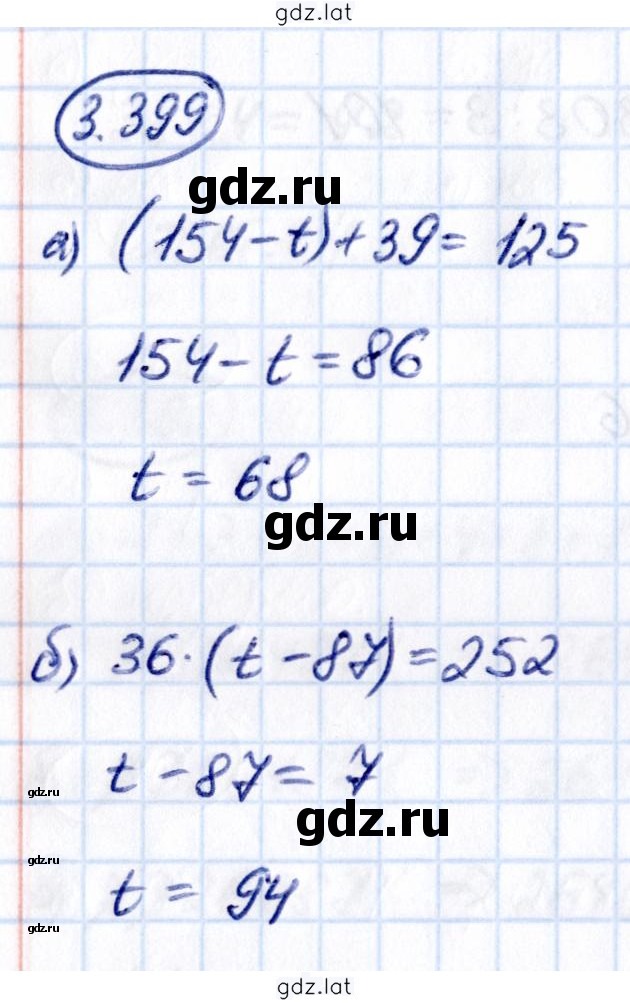 gdz.lat
3.399
gdz.ru
а) (154-t)+39= 125
154-t=86
t = 68
gdz.ru
б) 36·(t-87)=252
t-87= 7
gdz.ru
gdz.ru
gdz.ru
t = 94
gdz.ru
gdz.lat